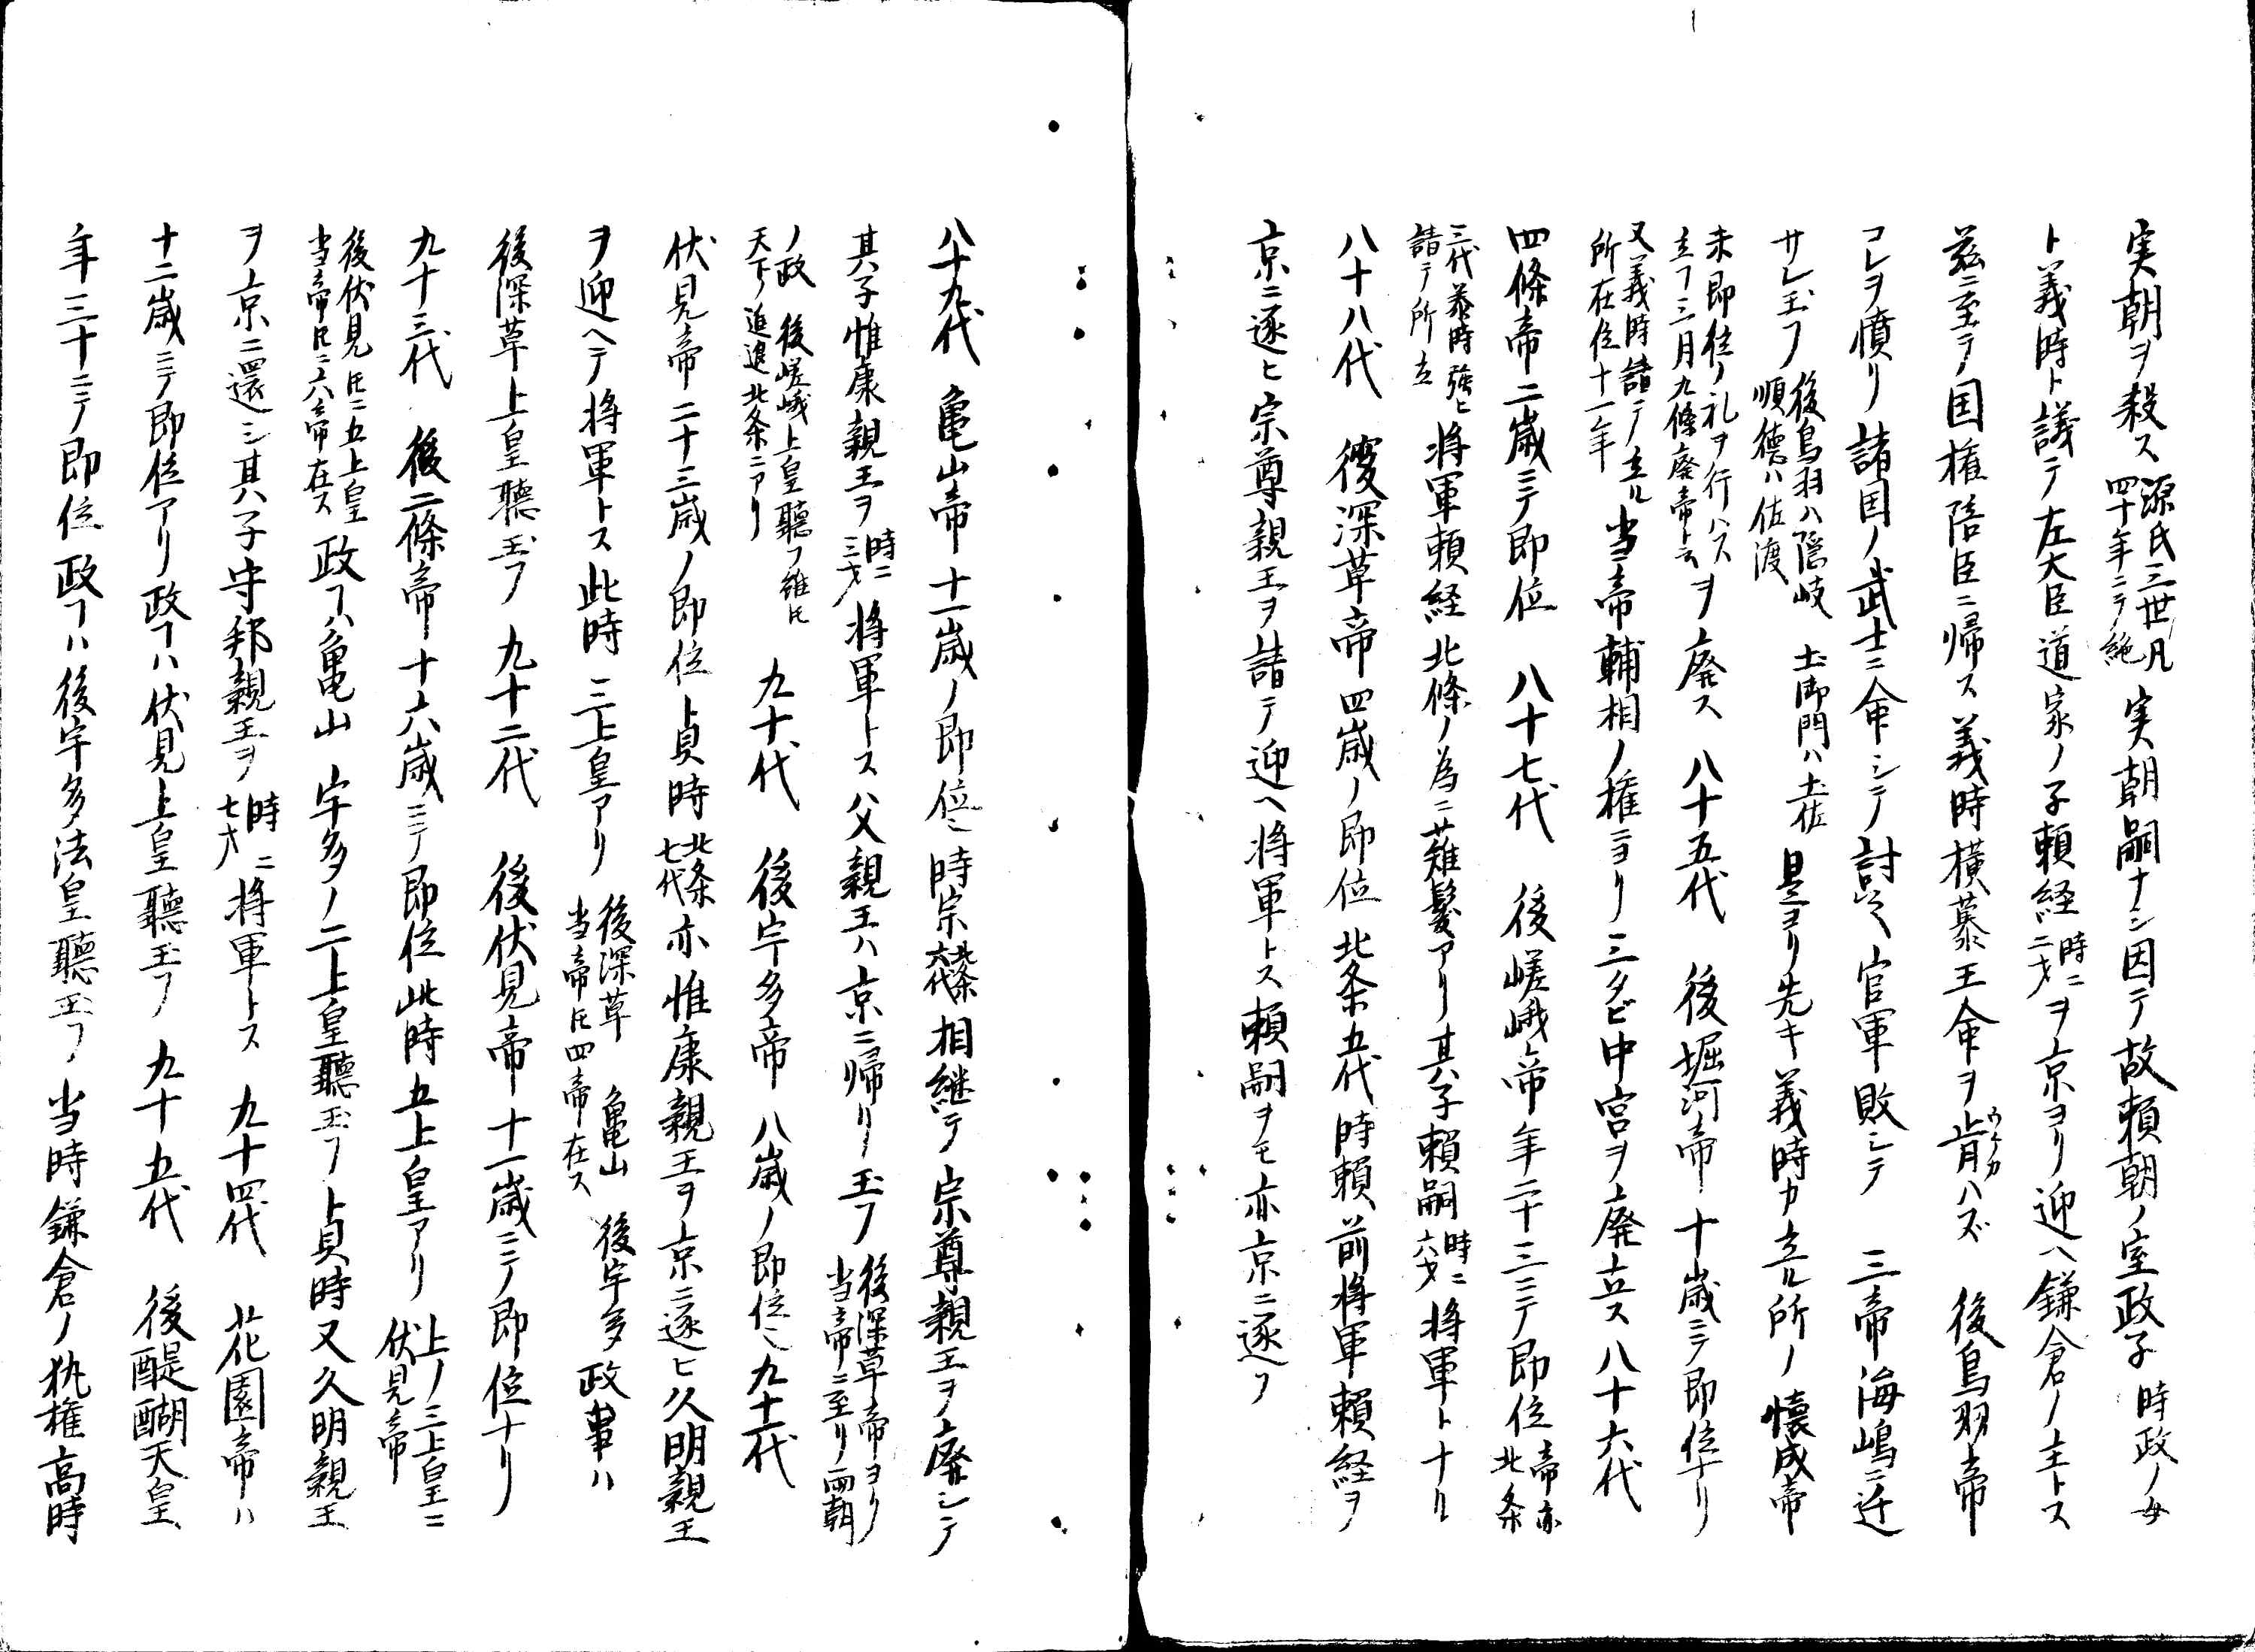 実朝ヲ殺ス 源氏三世凡四十年ニテ絶 実朝嗣ナシ因テ故頼朝ノ室政子 時政ノ女
ト義時ト議テ左大臣道家ノ子頼経 時ニ二才 ヲ京ヨリ迎ヘ鎌倉ノ主トス
茲ニ至テ国権陪臣ニ帰ス義時横暴王命ヲ肯ハズ 後鳥羽帝
コレヲ憤リ諸国ノ武士ニ命シテ討シム官軍敗シテ 三帝海嶋ニ迁
サレ玉フ 後鳥羽ハ隠岐 順徳ハ佐渡 土御門ハ土佐 是ヨリ先キ義時カ立ル所ノ懐成帝
未即位ノ礼ヲ行ハス 立フ三月九條廃帝ト云 ヲ廃ス 八十五代 後堀河帝 十歳ニテ即位ナリ
又義時請テ立ル 所在位十一年 当帝輔相ノ権ニヨリ三タビ中宮ヲ廃立ス 八十六代
四條帝二歳ニテ即位 八十七代 後嵯峨帝年二十三ニテ即位 帝亦北条
三代泰時強ヒ 請テ所立 将軍頼経北條ノ為ニ薙髪アリ其子頼嗣 時ニ六才 将軍トナル
八十八代 後深草帝四歳ノ即位北条五代時頼前将軍頼経ヲ
京ニ逐ヒ宗尊親王ヲ請テ迎ヘ将軍トス頼嗣ヲモ亦京ニ逐フ
八十九代 亀山帝十一歳ノ即位ニ時宗 北条六代 相継テ宗尊親王ヲ廃シテ
其子惟康親王ヲ 時ニ三才 将軍トス父親王ハ京ニ帰リ玉フ 後深草帝ヨリ当帝ニ至リ両朝
ノ政 後嵯峨上皇聴フ雖ヒ 天下ノ進退北条ニアリ 九十代 後宇多帝 八歳ノ即位ニ九十一代
伏見帝二十三歳ノ即位ト貞時 北条七代 亦惟康親王ヲ京ニ逐ヒ久明親王
ヲ迎ヘテ将軍トス此時三上皇アリ 後深草 亀山 後宇多 当帝ヒ四帝在ス 政事ハ
後深草上皇聴玉フ 九十二代 後伏見帝十一歳ニテノ即位ナリ
九十三代 後二條帝十六歳ニテ即位此時五上皇アリ 上ノ三上皇ニ伏見帝
後伏見ヒニ五上皇 当帝ヒニ六帝在ス 政フハ亀山 宇多ノ二上皇聴玉フト貞時又久明親王
ヲ京ニ還シ其子守邦親王ヲ 時ニ七才 将軍トス 九十四代 花園帝ハ
十二歳ニテ即位アリ政フハ伏見上皇聴玉フ 九十五代 後醍醐天皇
年三十ニテ即位政フハ後宇多法皇聴玉フ当時鎌倉ノ執権高時